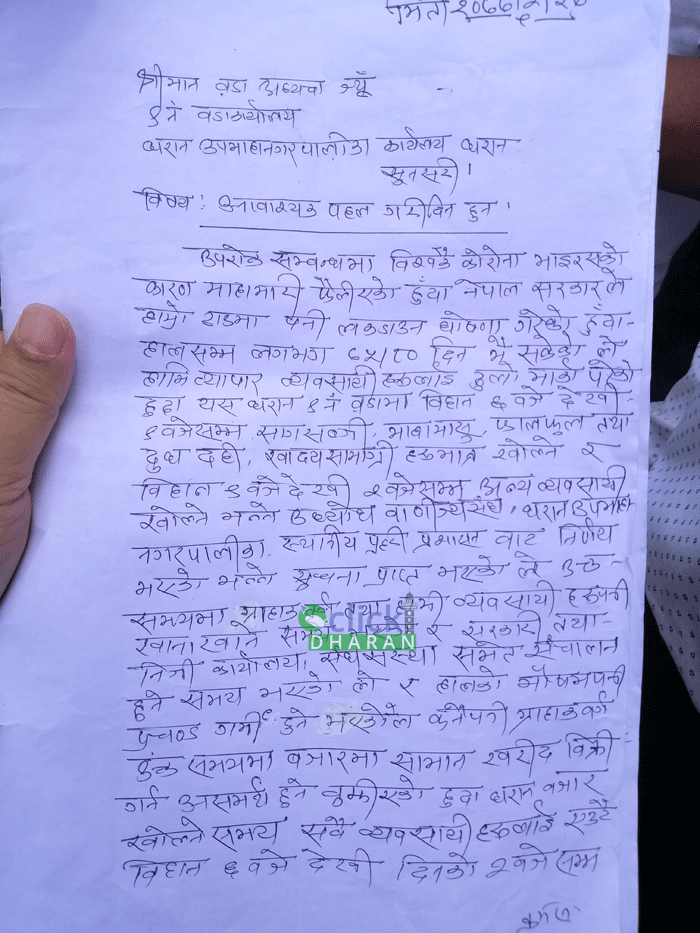 श्रीमान वडा अध्यक्ष ज्यूँ
८ नं वडाकार्यालय
धरान उपमाहानगरपालीका कार्यलय धरान
सुनसरी।
विषय: अनावाश्यक पहल गरीदिन हुन।
उपरोक्त सम्बन्धमा विश्वकै कोरोना भाइरसको
कारण माहामारी फैलीएको हुँदा नेपाल सरकारले
हाम्रो राडमा पनी लकडाउन घोषणा गरेको हुँदा-
हालसम्म लगभग ६५।८० दिन भै सकेको ले
हामि व्यापार व्यवसायी हरुलाई ठुलो मार्का परेको
हुदा यस धरान ८ नं वडामा विहान ६ वजे देखी
८ वजेसम्म सागसब्जी, माछामासु, फालफुल तथा
दुध दही, खाद्यसामाग्री हरुमात्र खोल्ने र
विहान ८ वजे देखी २वजेसम्म अन्य व्यवसायी
खोल्ने भन्ने उध्योध वाणीज्यसंघ, धरान उपमाहा
नगरपालीका, स्थानीय प्रहरी प्रशासन वाट निर्णय
भएको भन्ने सुचना प्राप्त भएको ले उक्त
समयमा ग्राहाकवर्ग तथा हामी व्यवसायी हरुपनी
खाना खाने र सरकारी तथा-
निजी कार्यालय, संघसंस्था समेत संचालन
हुने समय भएको ले र हालको मौषमपनी
प्रचण्ड गर्मी हुने भएकोले कुनैपनी ग्राहाकवर्ग
उक्त समयमा वजारमा सामान खरीद विक्री
गर्न असमर्थ हुने वुझीएको हुदा धरान वजार
खोल्ने समय सवै व्यवसायी हरुलाई एउटै
विहान ६ वजे देखी दिनको २वजे सम्म
click
DHARAN